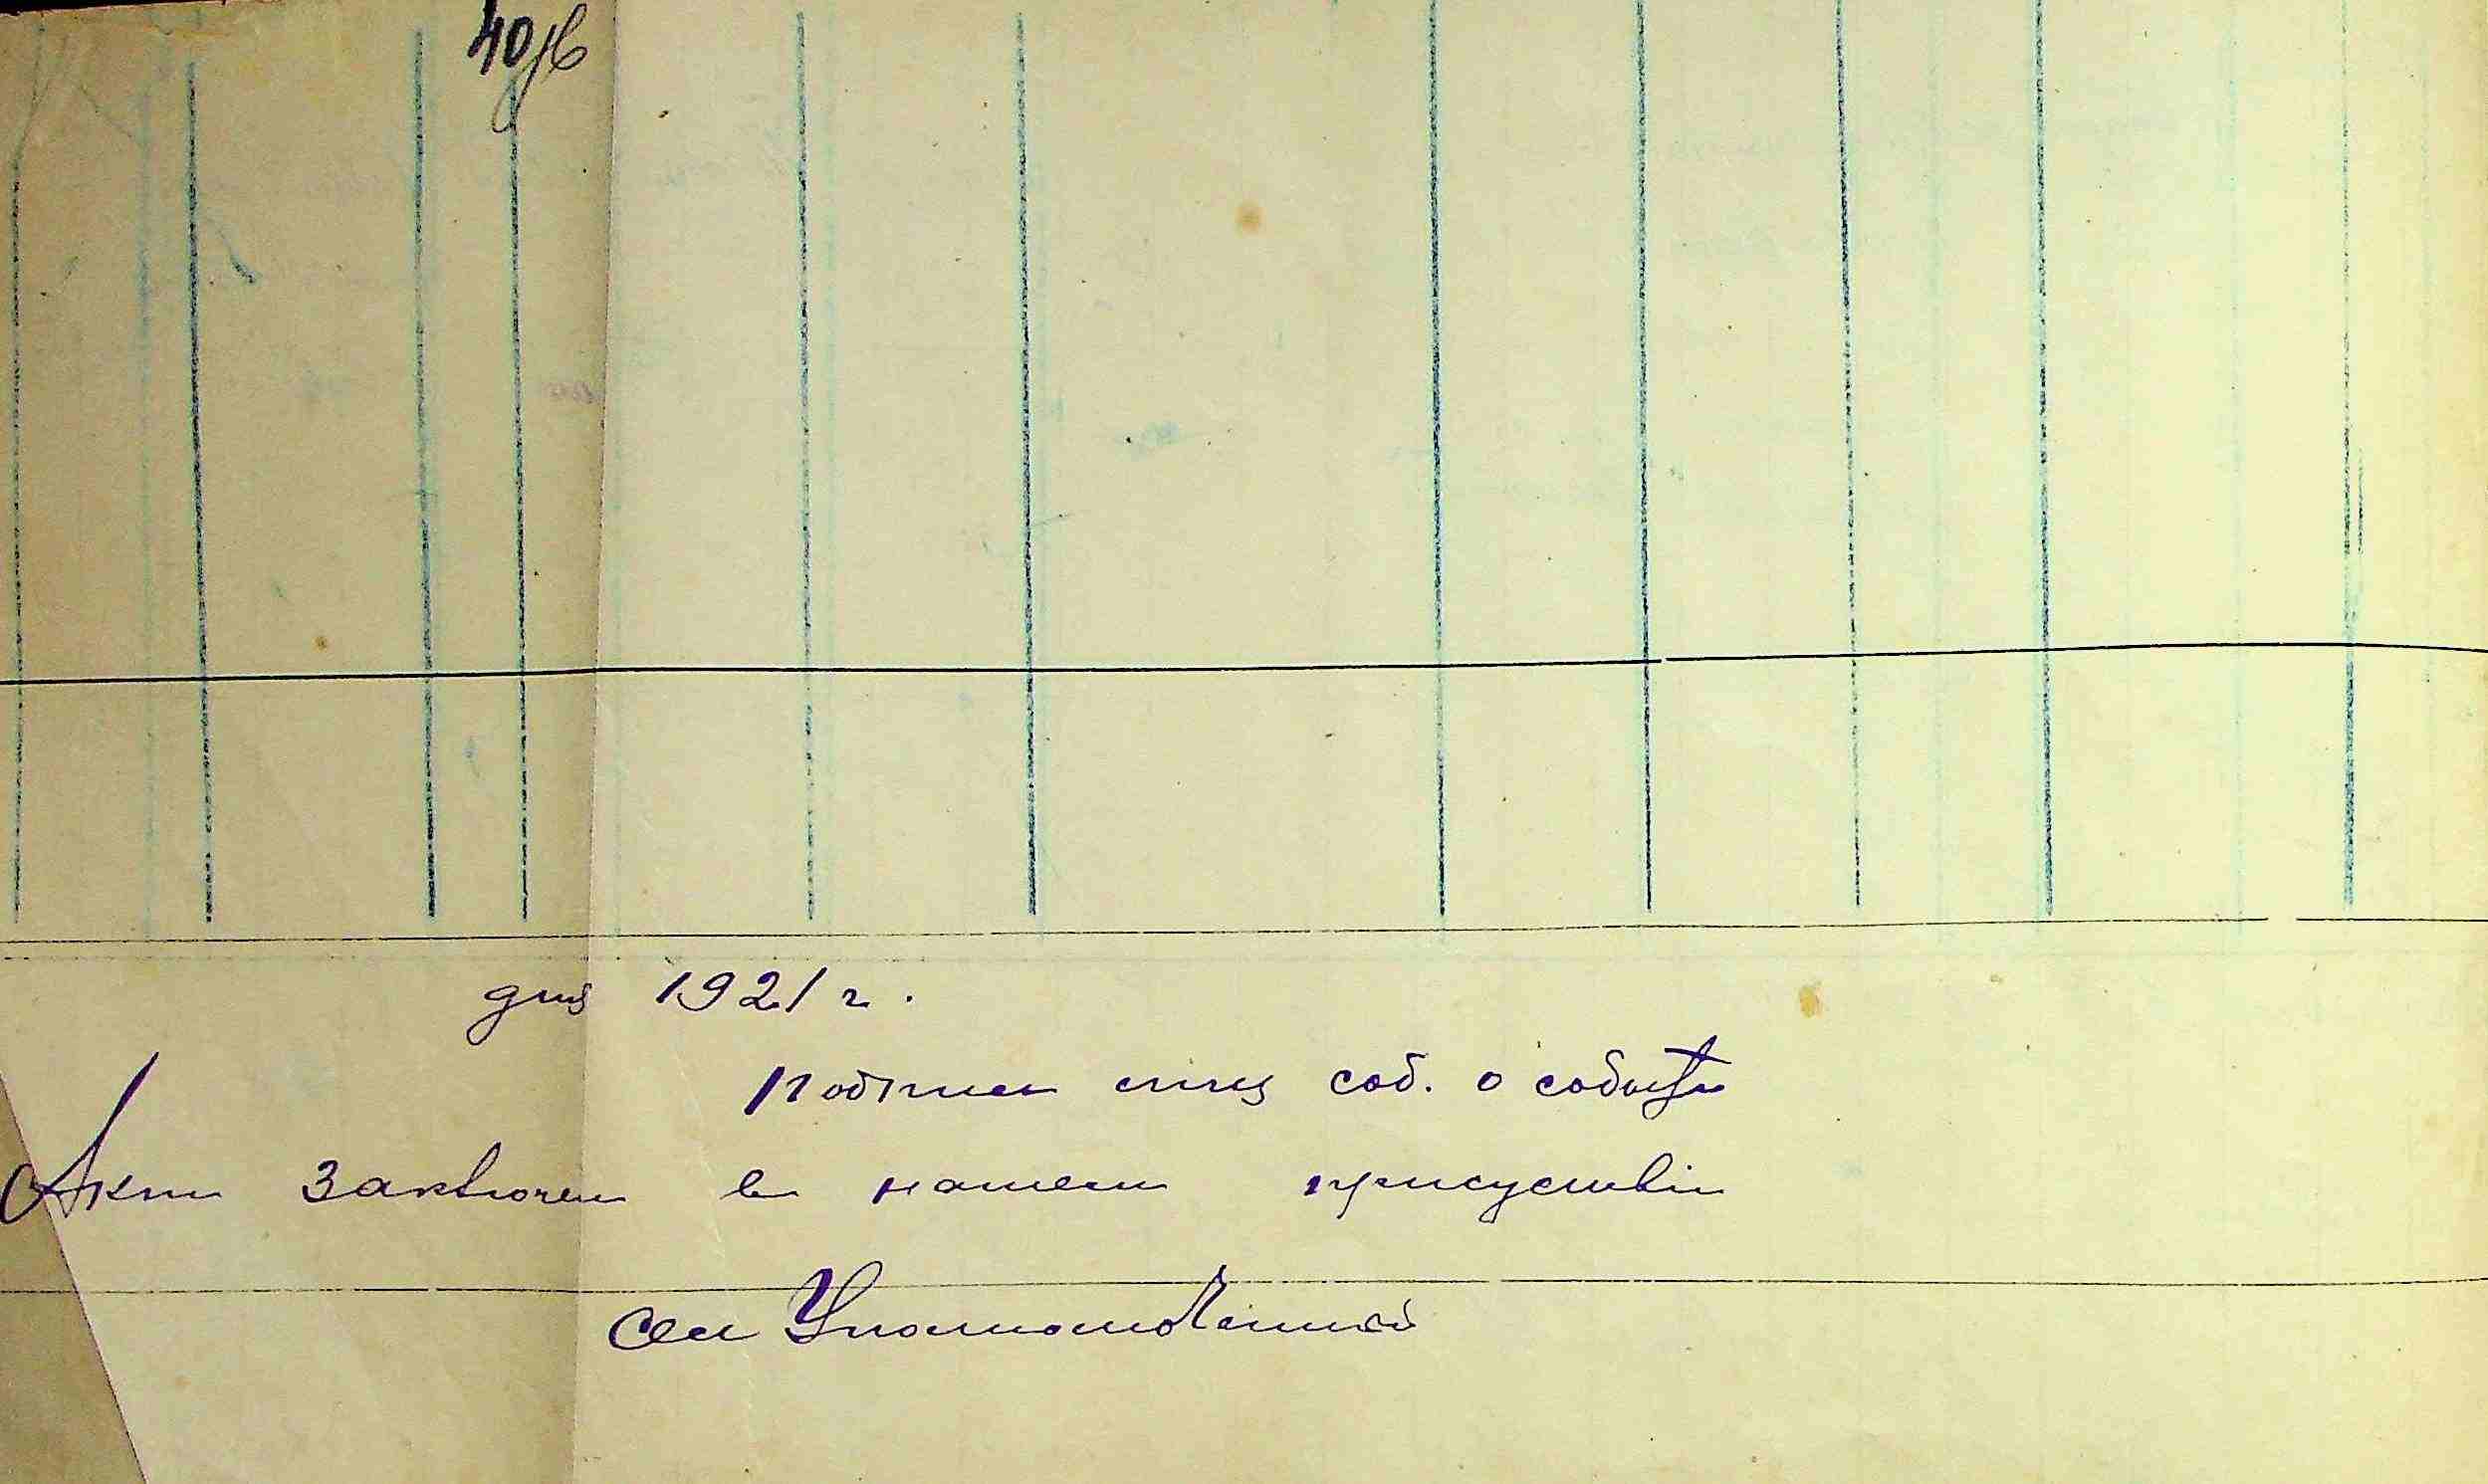 40 об
дня 1921 г.
Подписи лица соб. о событи
Акт заключен в нашем присуствіи
Сел Уполномоченный